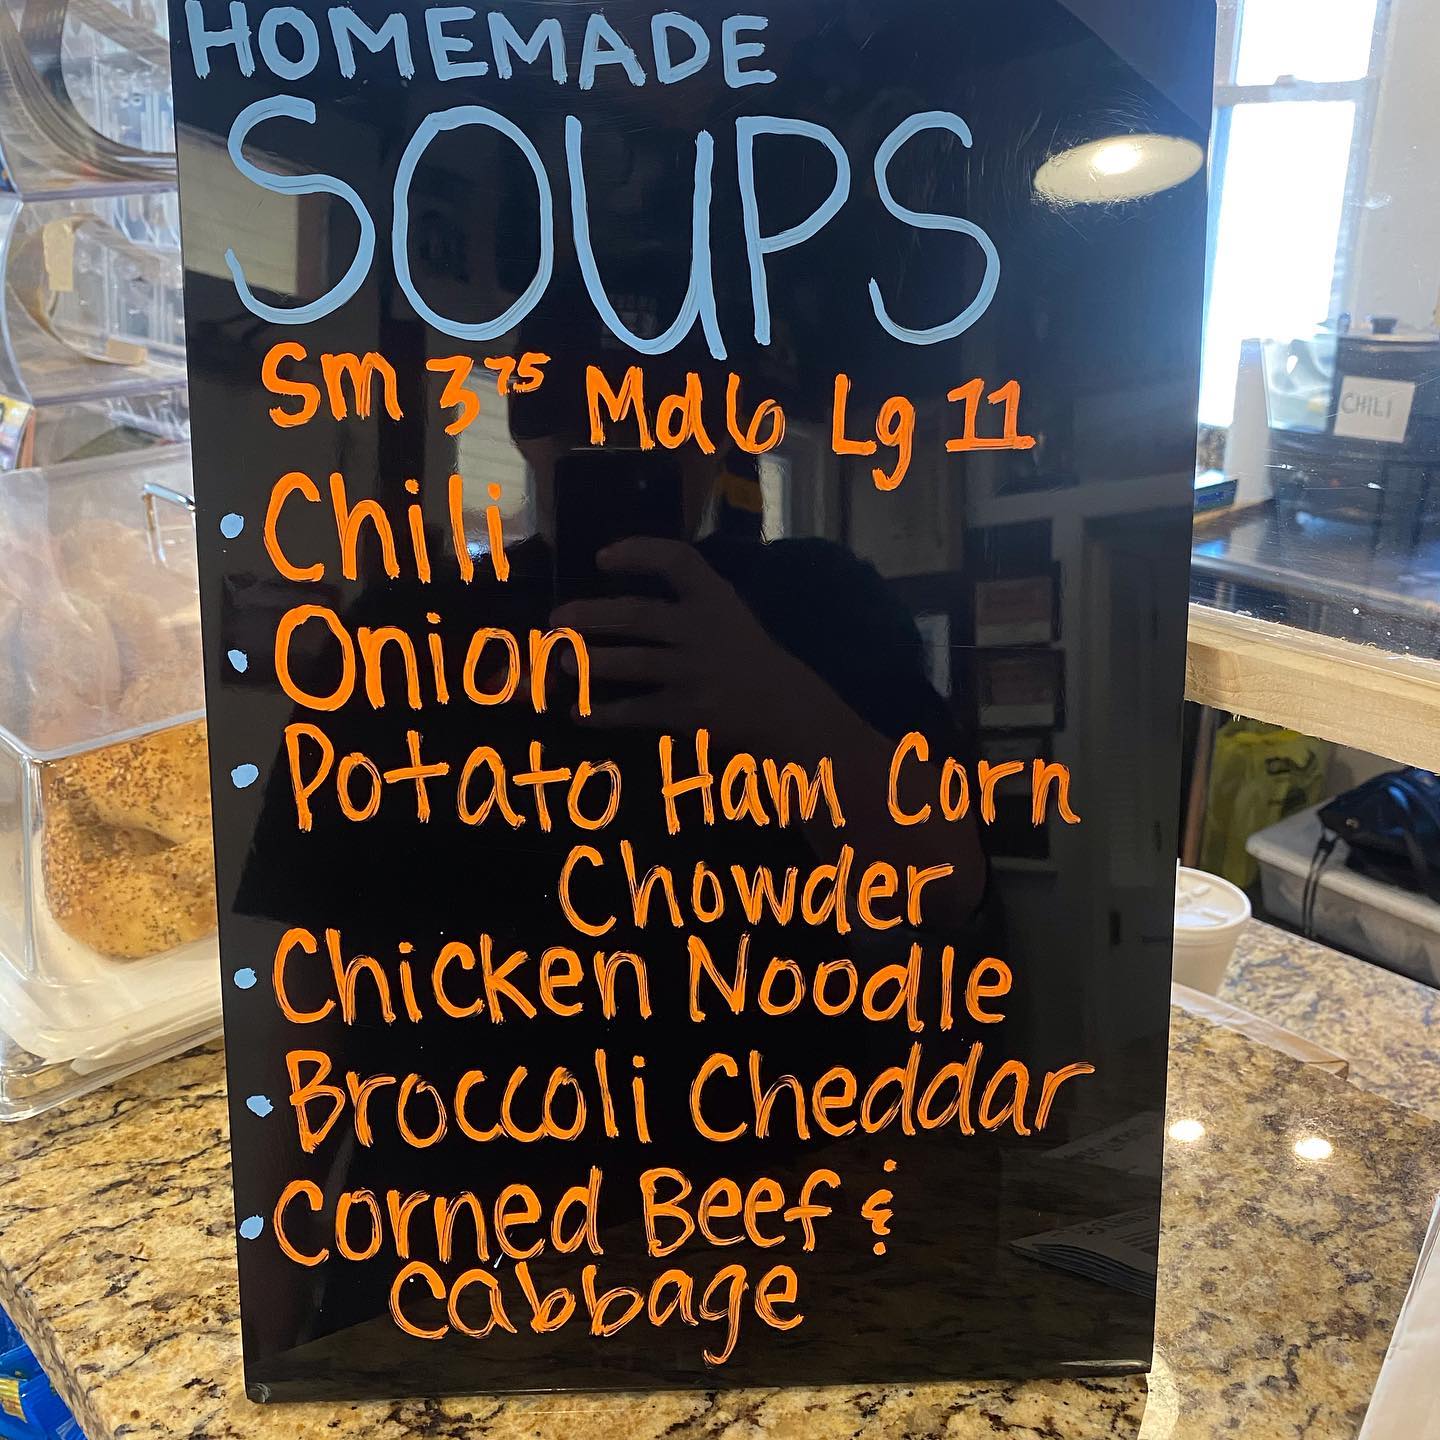 HOMEMADE
SOUPS
Sm 3 75 Md 6 Lg 11
• Chili
• Onion
• Potato Ham Corn
Chowder
• Chicken Noodle
• Broccoli Cheddar
• Corned Beef &
Cabbage
CHILI